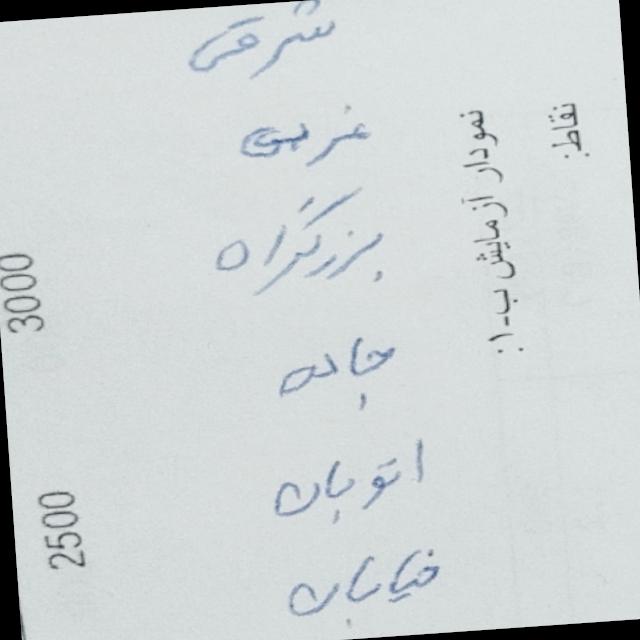 شرقی
غربی
بزرگراه
جاده
اتوبان
خیابان
نمودار آزمایش ب-۱:
نقاط:
3000
2500